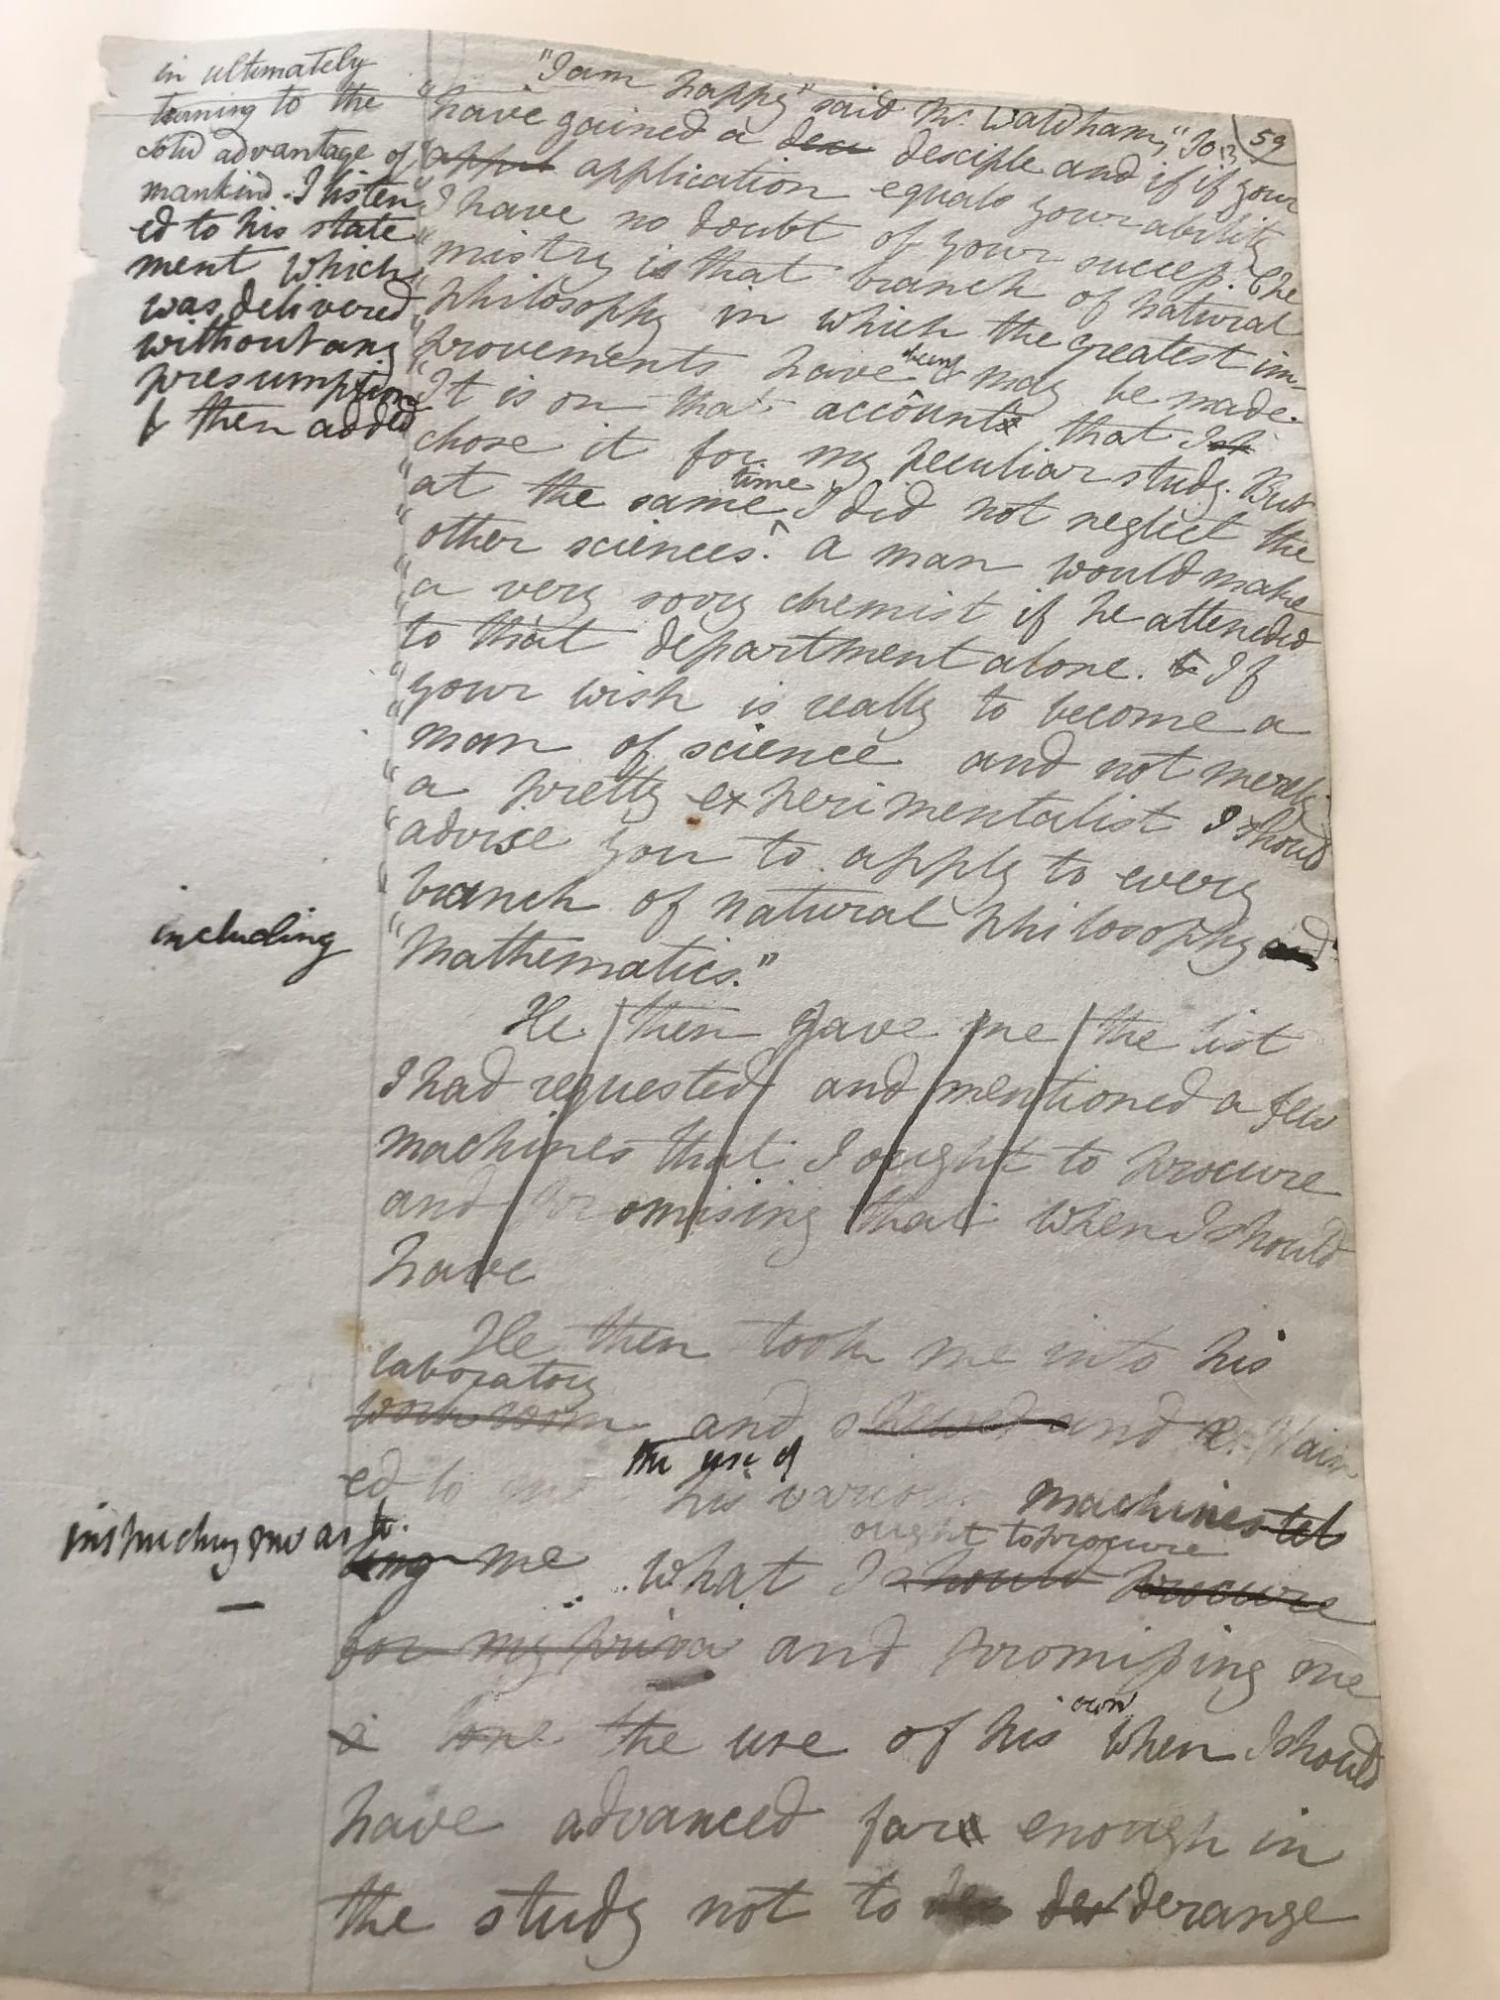 in ultimately
turning to the
solid advantage of
mankind. I listen
ed to his state
ment which
was delivered
without any
presumption
& then added
59
"I am happy" said M. Waldham, "To
"have gained a desciple and if if your
"application equals your ability
"I have no doubt of your success. Che
"mistry is that branch of natural
"philosophy in which the greatest im-
"provements have been & may be made.
"It is on that account that I
chose it for my peculiar study. But
"at the same time I did not neglect the
"other sciences. A man would make
"a very sorry chemist if he attended
"to that department alone. If
"your wish is really to become a
"man of science and not merely
"a pretty experimentalist I should
"advise you to apply to every
"branch of natural philosophy and
including
"Mathematics."
He then gave me the list
I had requested and mentioned a few
machines that I ought to procure
and promising that when I should
have
He then took me into his
laboratory
work room and shewed and explain
ed to me the use of his various machines tel
instructing me as to
ling me what I should procure
ought to procure
for my priva and promising me
the use of his own when I should
have advanced far enough in
the study not to der derange